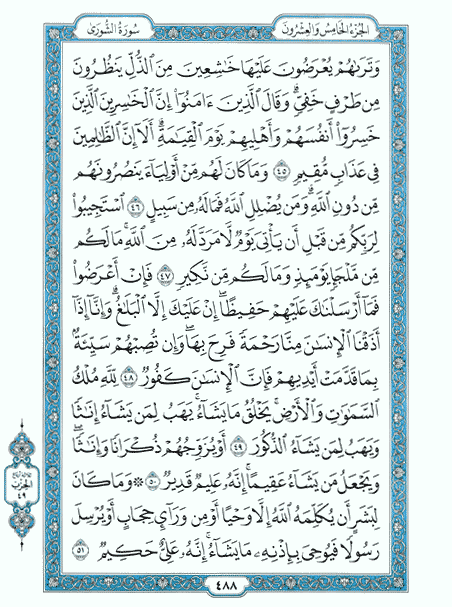 سُورَةُ الشُّورَىٰ
الجُزْءُ الخَامِسُ وَالعِشْرُونَ
وَتَرَىٰهُمْ يُعْرَضُونَ عَلَيْهَا خَٰشِعِينَ مِنَ ٱلذُّلِّ يَنظُرُونَ
مِن طَرْفٍ خَفِيٍّۗ وَقَالَ ٱلَّذِينَ ءَامَنُوٓا۟ إِنَّ ٱلْخَٰسِرِينَ ٱلَّذِينَ
خَسِرُوٓا۟ أَنفُسَهُمْ وَأَهْلِيهِمْ يَوْمَ ٱلْقِيَٰمَةِۗ أَلَآ إِنَّ ٱلظَّٰلِمِينَ
فِى عَذَابٍ مُّقِيمٍ ٤٥ وَمَا كَانَ لَهُم مِّنْ أَوْلِيَآءَ يَنصُرُونَهُم
مِّن دُونِ ٱللَّهِۗ وَمَن يُضْلِلِ ٱللَّهُ فَمَا لَهُۥ مِن سَبِيلٍ ٤٦ ٱسْتَجِيبُوا۟
لِرَبِّكُم مِّن قَبْلِ أَن يَأْتِىَ يَوْمٌ لَّا مَرَدَّ لَهُۥ مِنَ ٱللَّهِۚ مَا لَكُم
مِّن مَّلْجَإٍ يَوْمَئِذٍ وَمَا لَكُم مِّن نَّكِيرٍ ٤٧ فَإِنْ أَعْرَضُوا۟
فَمَآ أَرْسَلْنَٰكَ عَلَيْهِمْ حَفِيظًاۖ إِنْ عَلَيْكَ إِلَّا ٱلْبَلَٰغُۗ وَإِنَّآ إِذَآ
أَذَقْنَا ٱلْإِنسَٰنَ مِنَّا رَحْمَةً فَرِحَ بِهَاۖ وَإِن تُصِبْهُمْ سَيِّئَةٌۢ
بِمَا قَدَّمَتْ أَيْدِيهِمْ فَإِنَّ ٱلْإِنسَٰنَ كَفُورٌ ٤٨ لِّلَّهِ مُلْكُ
ٱلسَّمَٰوَٰتِ وَٱلْأَرْضِۚ يَخْلُقُ مَا يَشَآءُۚ يَهَبُ لِمَن يَشَآءُ إِنَٰثًا
وَيَهَبُ لِمَن يَشَآءُ ٱلذُّكُورَ ٤٩ أَوْ يُزَوِّجُهُمْ ذُكْرَانًا وَإِنَٰثًاۖ
وَيَجْعَلُ مَن يَشَآءُ عَقِيمًاۚ إِنَّهُۥ عَلِيمٌ قَدِيرٌ ٥٠ ۞ وَمَا كَانَ
لِبَشَرٍ أَن يُكَلِّمَهُ ٱللَّهُ إِلَّا وَحْيًا أَوْ مِن وَرَآئِ حِجَابٍ أَوْ يُرْسِلَ
رَسُولًا فَيُوحِىَ بِإِذْنِهِۦ مَا يَشَآءُۚ إِنَّهُۥ عَلِىٌّ حَكِيمٌ ٥١
الحزب
٤٩
٤٨٨